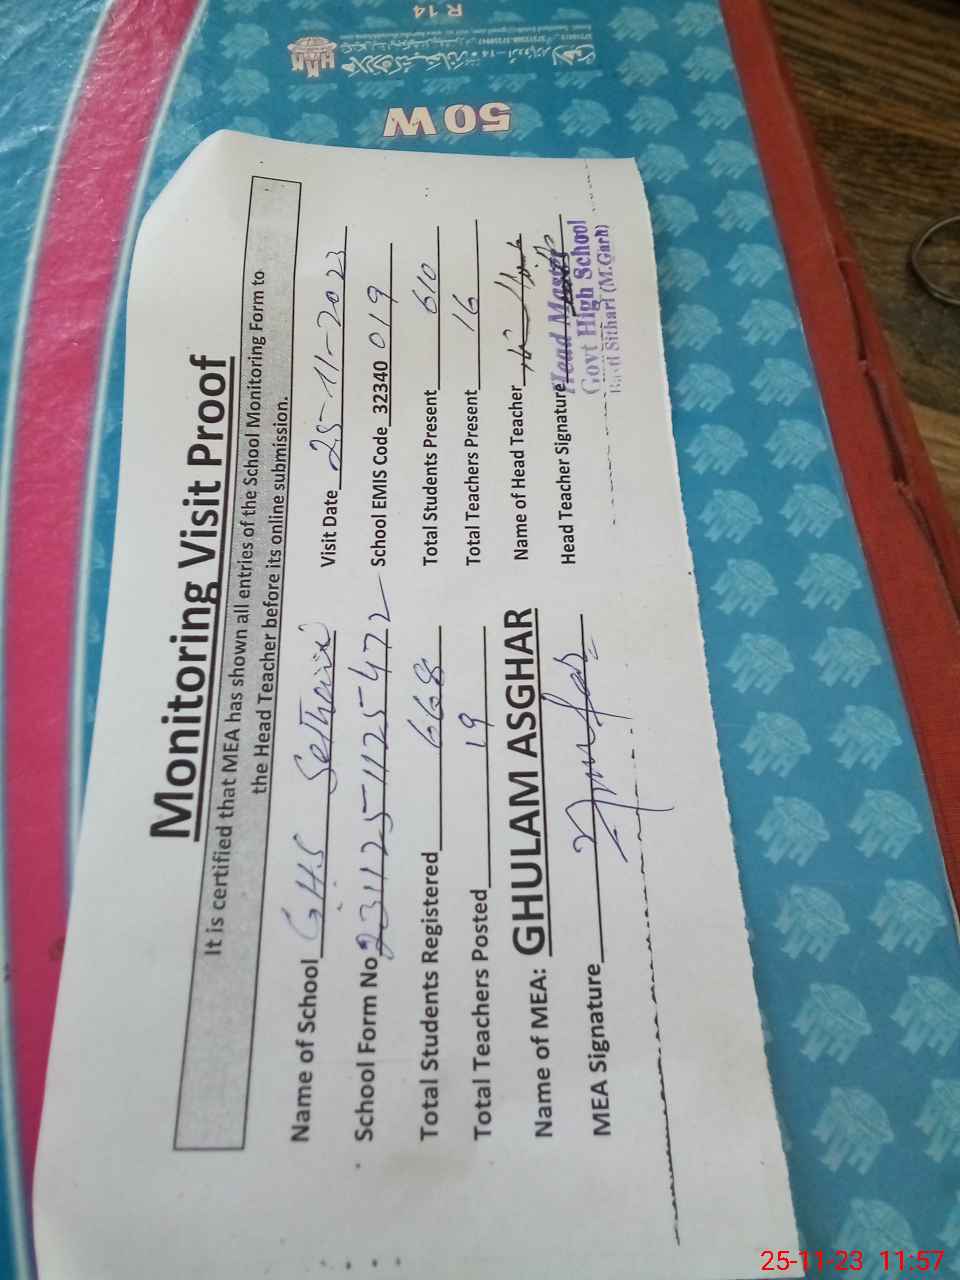 R 14
50W
Monitoring Visit Proof
It is certified that MEA has shown all entries of the School Monitoring Form to
the Head Teacher before its online submission.
Name of School G.H.S Visit Date 25-11-2023
School Form No 231125-1125472 School EMIS Code 32340 019
Total Students Registered 668 Total Students Present 610
Total Teachers Posted 19 Total Teachers Present 16
Name of MEA: GHULAM ASGHAR Name of Head Teacher
MEA Signature Head Teacher Signature
Head Master
Govt High School
Basti Sithari (M.Garh)
25-11-23 11:57